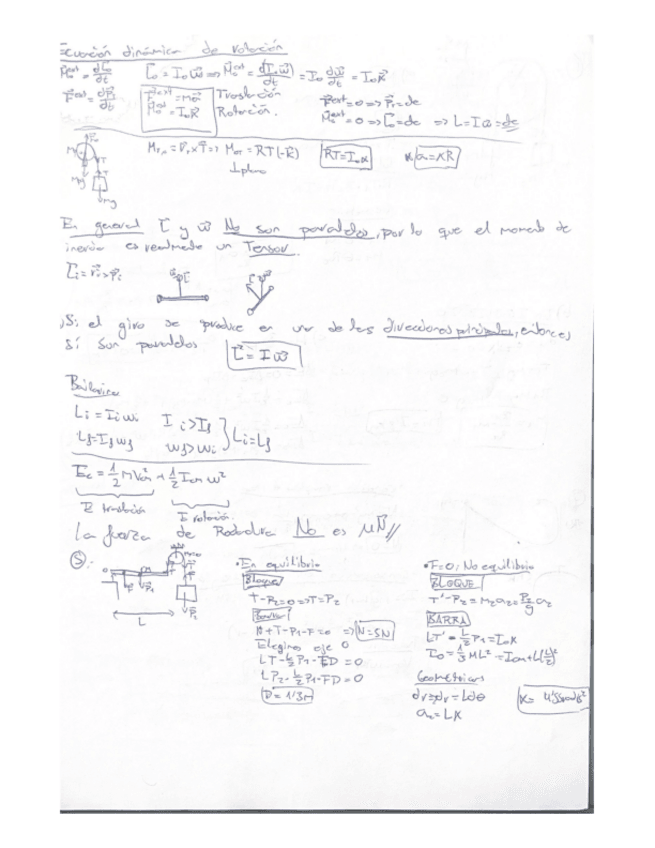 Ecuación dinámica de rotación
M⃗oext = dL⃗o/dt   L⃗o = Io ω⃗ => M⃗oext = d(Io ω⃗)/dt = Io dω⃗/dt = Io α⃗
F⃗ext = dp⃗/dt   F⃗ext = ma⃗ Traslación   F⃗ext = 0 => p⃗ = cte
M⃗oext = Io α⃗ Rotación.   M⃗oext = 0 => L⃗ = cte => L = Iω = cte
M⃗ = r⃗ x T⃗ => MoT = RT(-k⃗)   RT = Io α   a = αR
⊥ plano
En general L⃗ y ω⃗ No son paralelos, por lo que el momento de
inercia es realmente un Tensor.
L⃗i = r⃗i x p⃗i
Si el giro se produce en una de las direcciones principales, entonces
sí son paralelos L⃗ = I ω⃗
Bailarina
Li = Ii ωi   Ii > If
Lf = If ωf   ωf > ωi   Li = Lf
Ec = 1/2 M Vcm² + 1/2 Icm ω²
E traslación   E rotación.
La fuerza de Rodadura No es μN⃗//
⑤.-
L
• En equilibrio
Bloque
T - P2 = 0 => T = P2
N + T - P1 - F = 0 => N = 5N
Elegimos eje O
LT - L/2 P1 - FD = 0
LP2 - L/2 P1 - FD = 0
D = 1/3m
• F = 0; No equilibrio
BLOQUE
T' - P2 = M2a2 = P2/g a2
BARRA
LT' - L/2 P1 = Io α
Io = 1/3 ML² = Icm + M(L/2)²
Geométricas
a2 = Lα